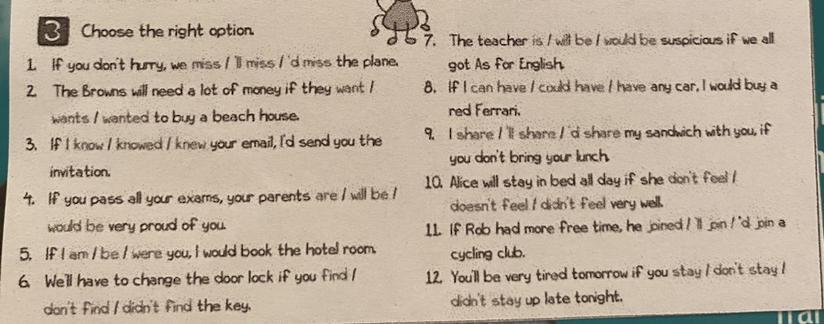 3 Choose the right option.
1. If you don't hurry, we miss / 'll miss / 'd miss the plane.
2. The Browns will need a lot of money if they want /
wants / wanted to buy a beach house.
3. If I know / knowed / knew your email, I'd send you the
invitation.
4. If you pass all your exams, your parents are / will be /
would be very proud of you.
5. If I am / be / were you, I would book the hotel room.
6. We'll have to change the door lock if you find /
don't find / didn't find the key.
7. The teacher is / will be / would be suspicious if we all
got As for English.
8. If I can have / could have / have any car, I would buy a
red Ferrari.
9. I share / 'll share / 'd share my sandwich with you, if
you don't bring your lunch.
10. Alice will stay in bed all day if she don't feel /
doesn't feel / didn't feel very well.
11. If Rob had more free time, he joined / 'll join / 'd join a
cycling club.
12. You'll be very tired tomorrow if you stay / don't stay /
didn't stay up late tonight.